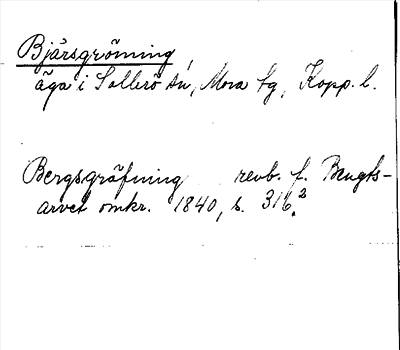 Bjärsgröning,
äga i Sollerö sn, Mora tg, Kopp. l.
Bergsgräfning revb. f. Bengts-
arvet omkr. 1840, s. 316.²